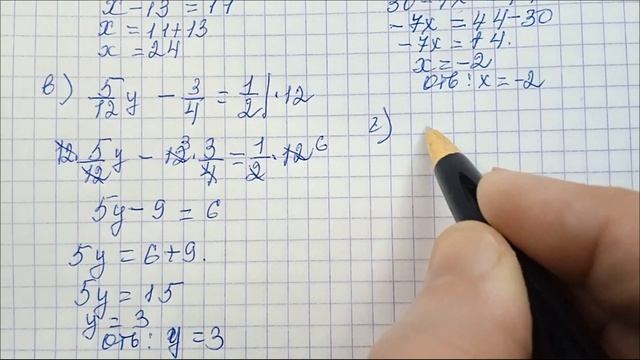 x - 13 = 11
x = 11+13
x = 24
в) 5/12 y - 3/4 = 1/2 | · 12
12 · 5/12 y - 12³ · 3/4 = 1/2 · 12⁶
5y - 9 = 6
5y = 6+9.
5y = 15
y = 3
Отв: y = 3
-7x = 44-30
-7x = 14.
x = -2
Отв: x = -2
г)